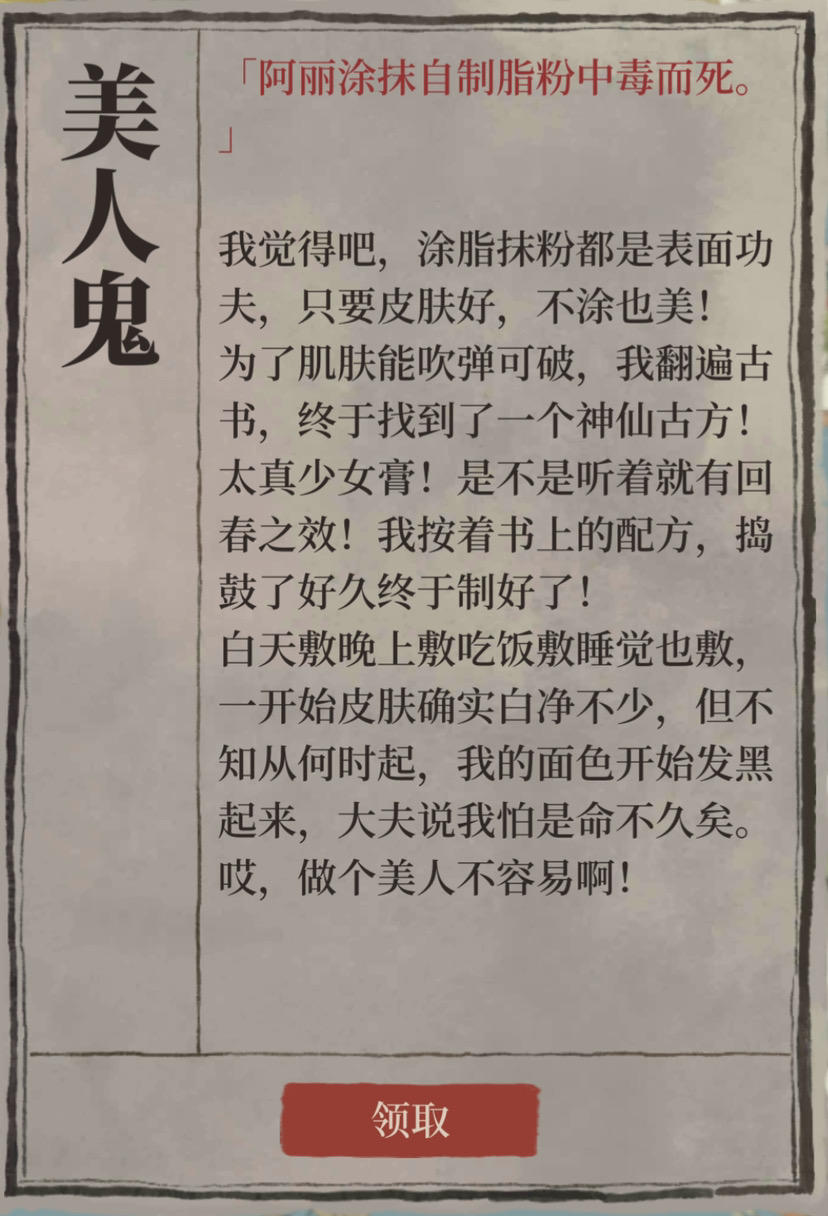 美人鬼
「阿丽涂抹自制脂粉中毒而死。
」
我觉得吧，涂脂抹粉都是表面功
夫，只要皮肤好，不涂也美！
为了肌肤能吹弹可破，我翻遍古
书，终于找到了一个神仙古方！
太真少女膏！是不是听着就有回
春之效！我按着书上的配方，捣
鼓了好久终于制好了！
白天敷晚上敷吃饭敷睡觉也敷，
一开始皮肤确实白净不少，但不
知从何时起，我的面色开始发黑
起来，大夫说我怕是命不久矣。
哎，做个美人不容易啊！
领取